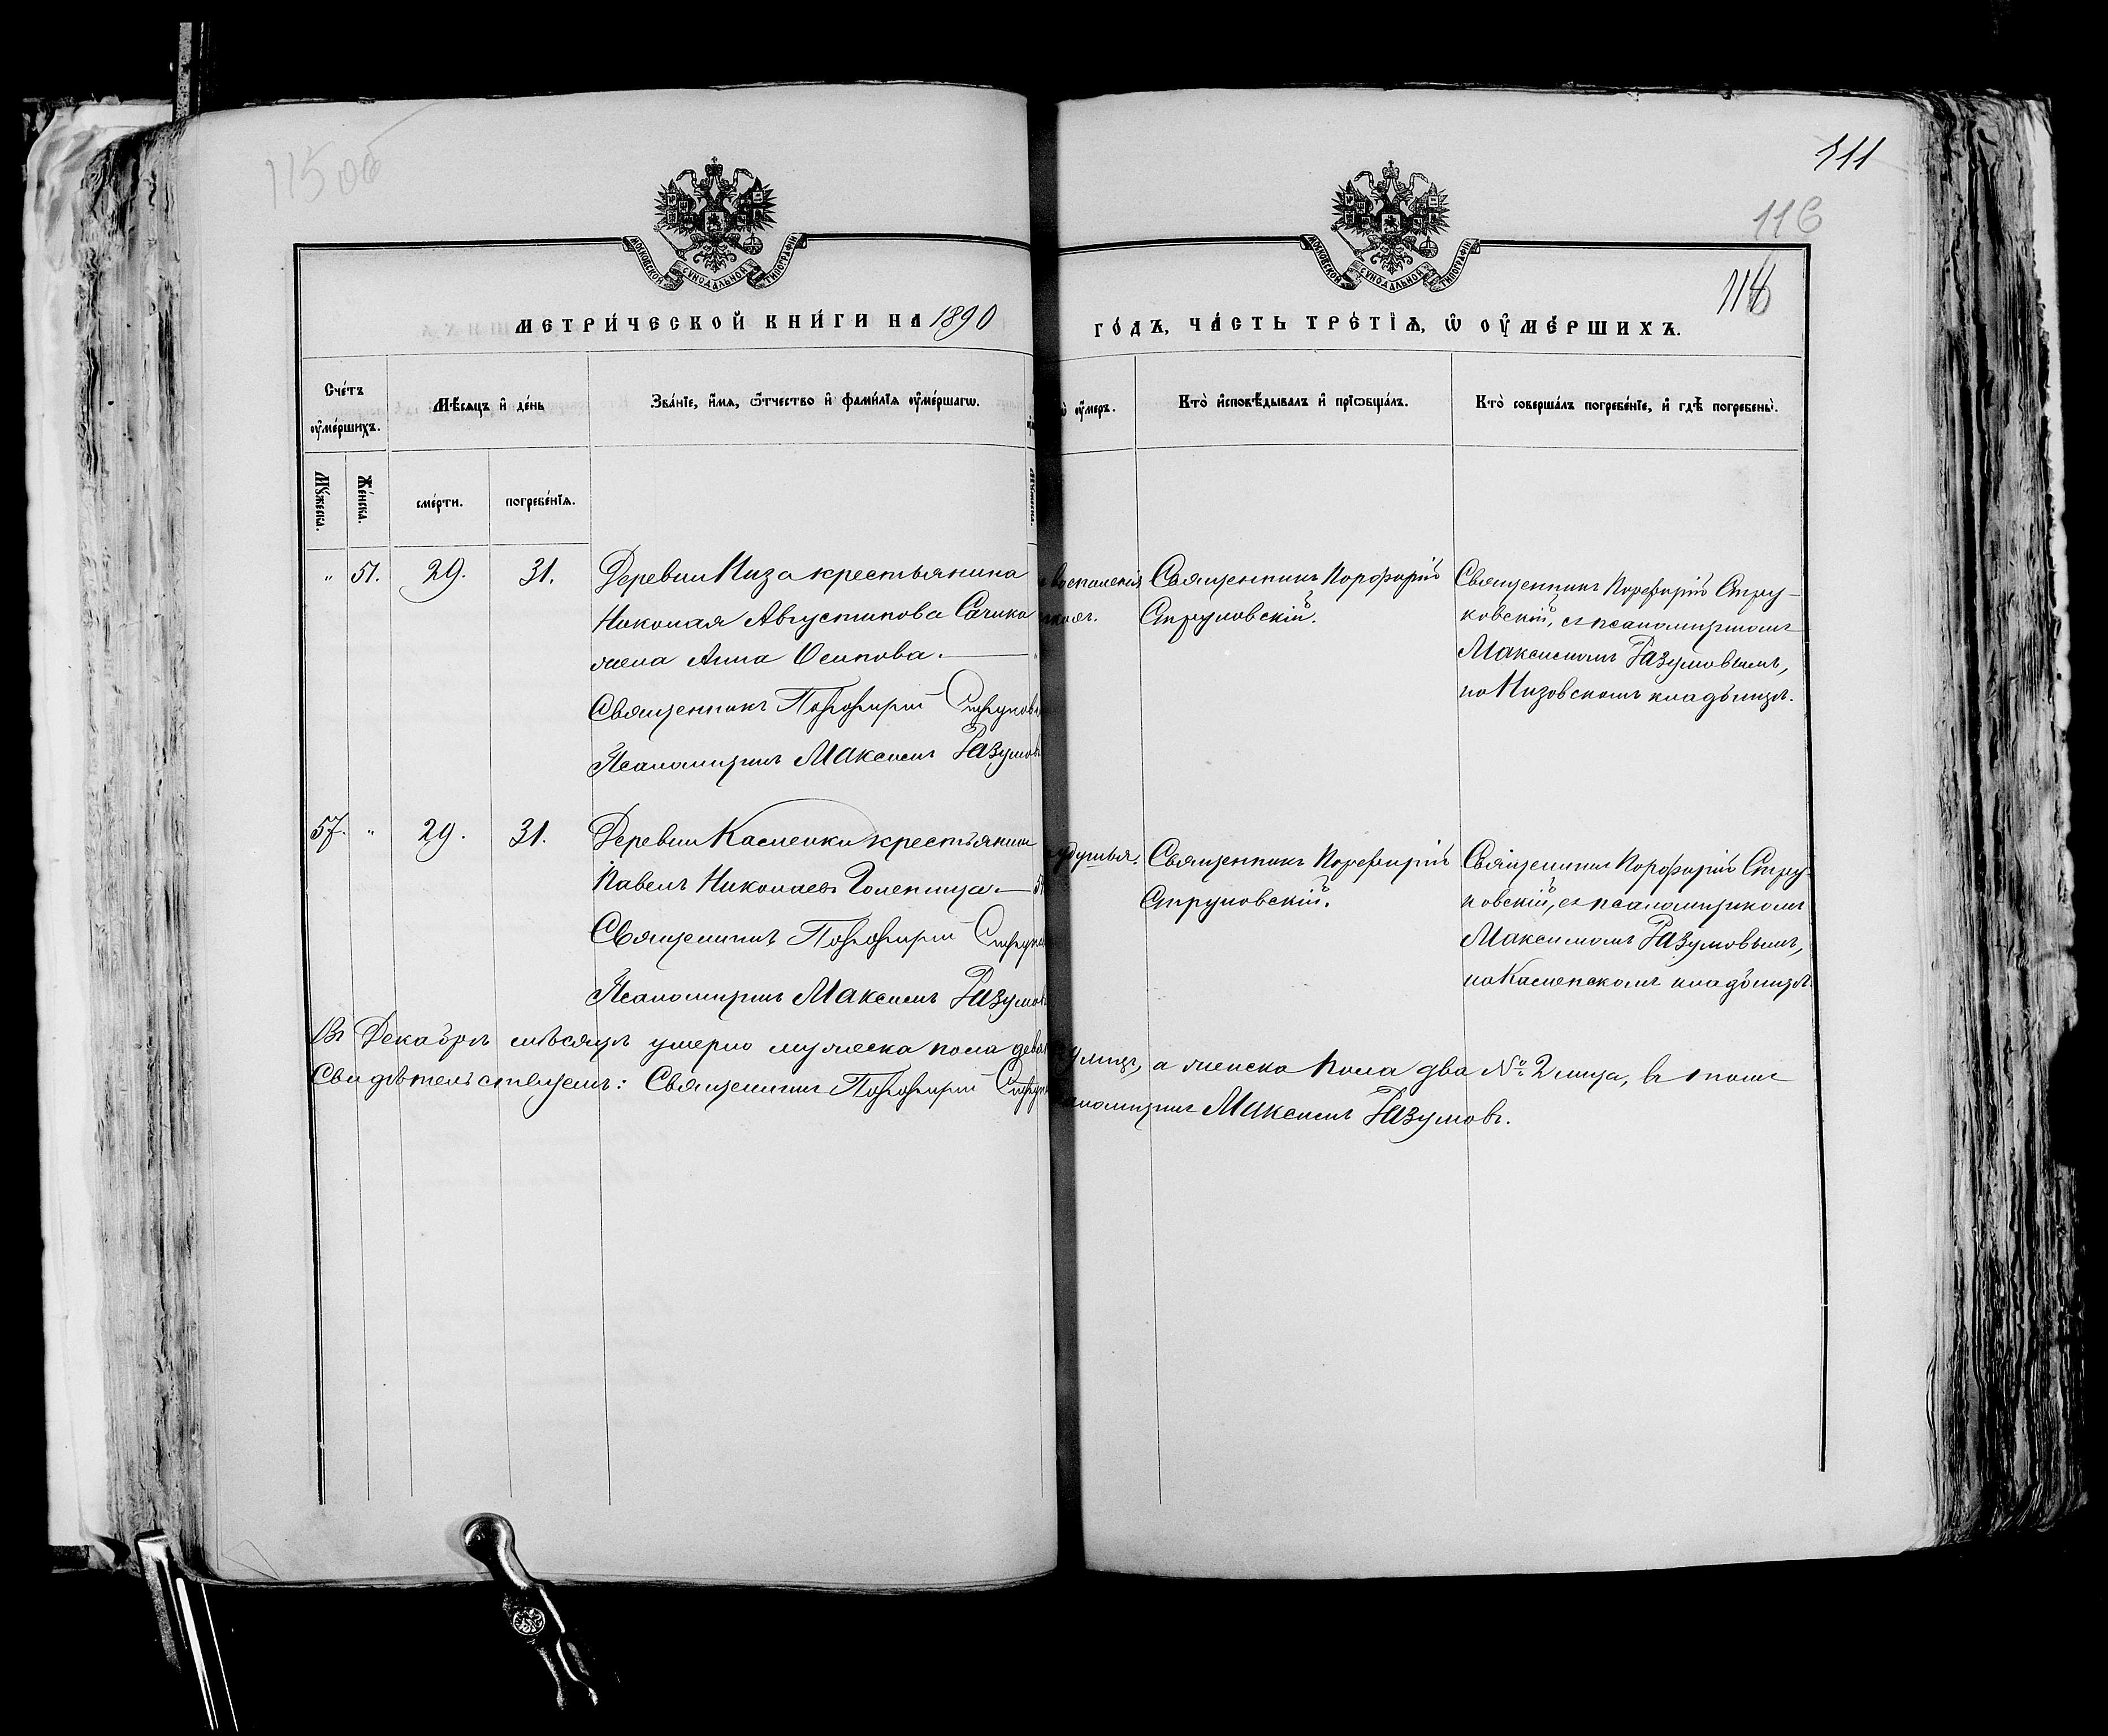 115 об
111
116
118
МОСКОВСКОЙ СУНОДАЛЬНОЙ ТИПОГРАФІИ
МОСКОВСКОЙ СУНОДАЛЬНОЙ ТИПОГРАФІИ
МЕТРИ́ЧЕСКОЙ КНИ́ГИ НА 1890
ГО́ДЪ, ЧА́СТЬ ТРЕ́ТІѦ, Ѡ҆ ОУ҆МЕ́РШИХЪ.
Сче́тъ оу҆ме́ршихъ.
Мѣ́сяцъ и҆ де́нь
Зва́нїе, и҆́мѧ, ѻ҆́тчество и҆ фами́лїѧ оу҆ме́ршагѡ.
оу҆́меръ.
Кто̀ и҆сповѣ́дывалъ и҆ прїѡбща́лъ.
Кто̀ соверша́лъ погребе́нїе, и҆ гдѣ̀ погребены̀.
Мꙋ́жеска.
Же́нска.
сме́рти.
погребе́нїѧ.
" 51. 29. 31.
Деревни Низа крестьянина
Николая Августинова
жена Анна Осипова.
Священникъ Порфирій
Псаломщикъ Максимъ
воспаленія
Священникъ Порфирій
Струковскій.
Священникъ Порфирій Стру-
ковскій, съ псаломщикомъ
Максимомъ Разумовымъ,
на Низовскомъ кладбищѣ.
57. " 29. 31.
Деревни Каменки крестьянин
Павелъ Николаевъ Голеница.
Священникъ Порфирій
Псаломщикъ Максимъ
удушья.
Священникъ Порфирій
Струковскій.
Священникъ Порфирій Стру-
ковскій, съ псаломщикомъ
Максимомъ Разумовымъ,
на Каменскомъ кладбищѣ.
Въ Декабрѣ мѣсяцѣ умерло мужеска пола
лицъ, а женска пола два № 2 лица, въ томъ
Свидѣтельствуемъ: Священникъ Порфирій
Максимъ Разумовъ.